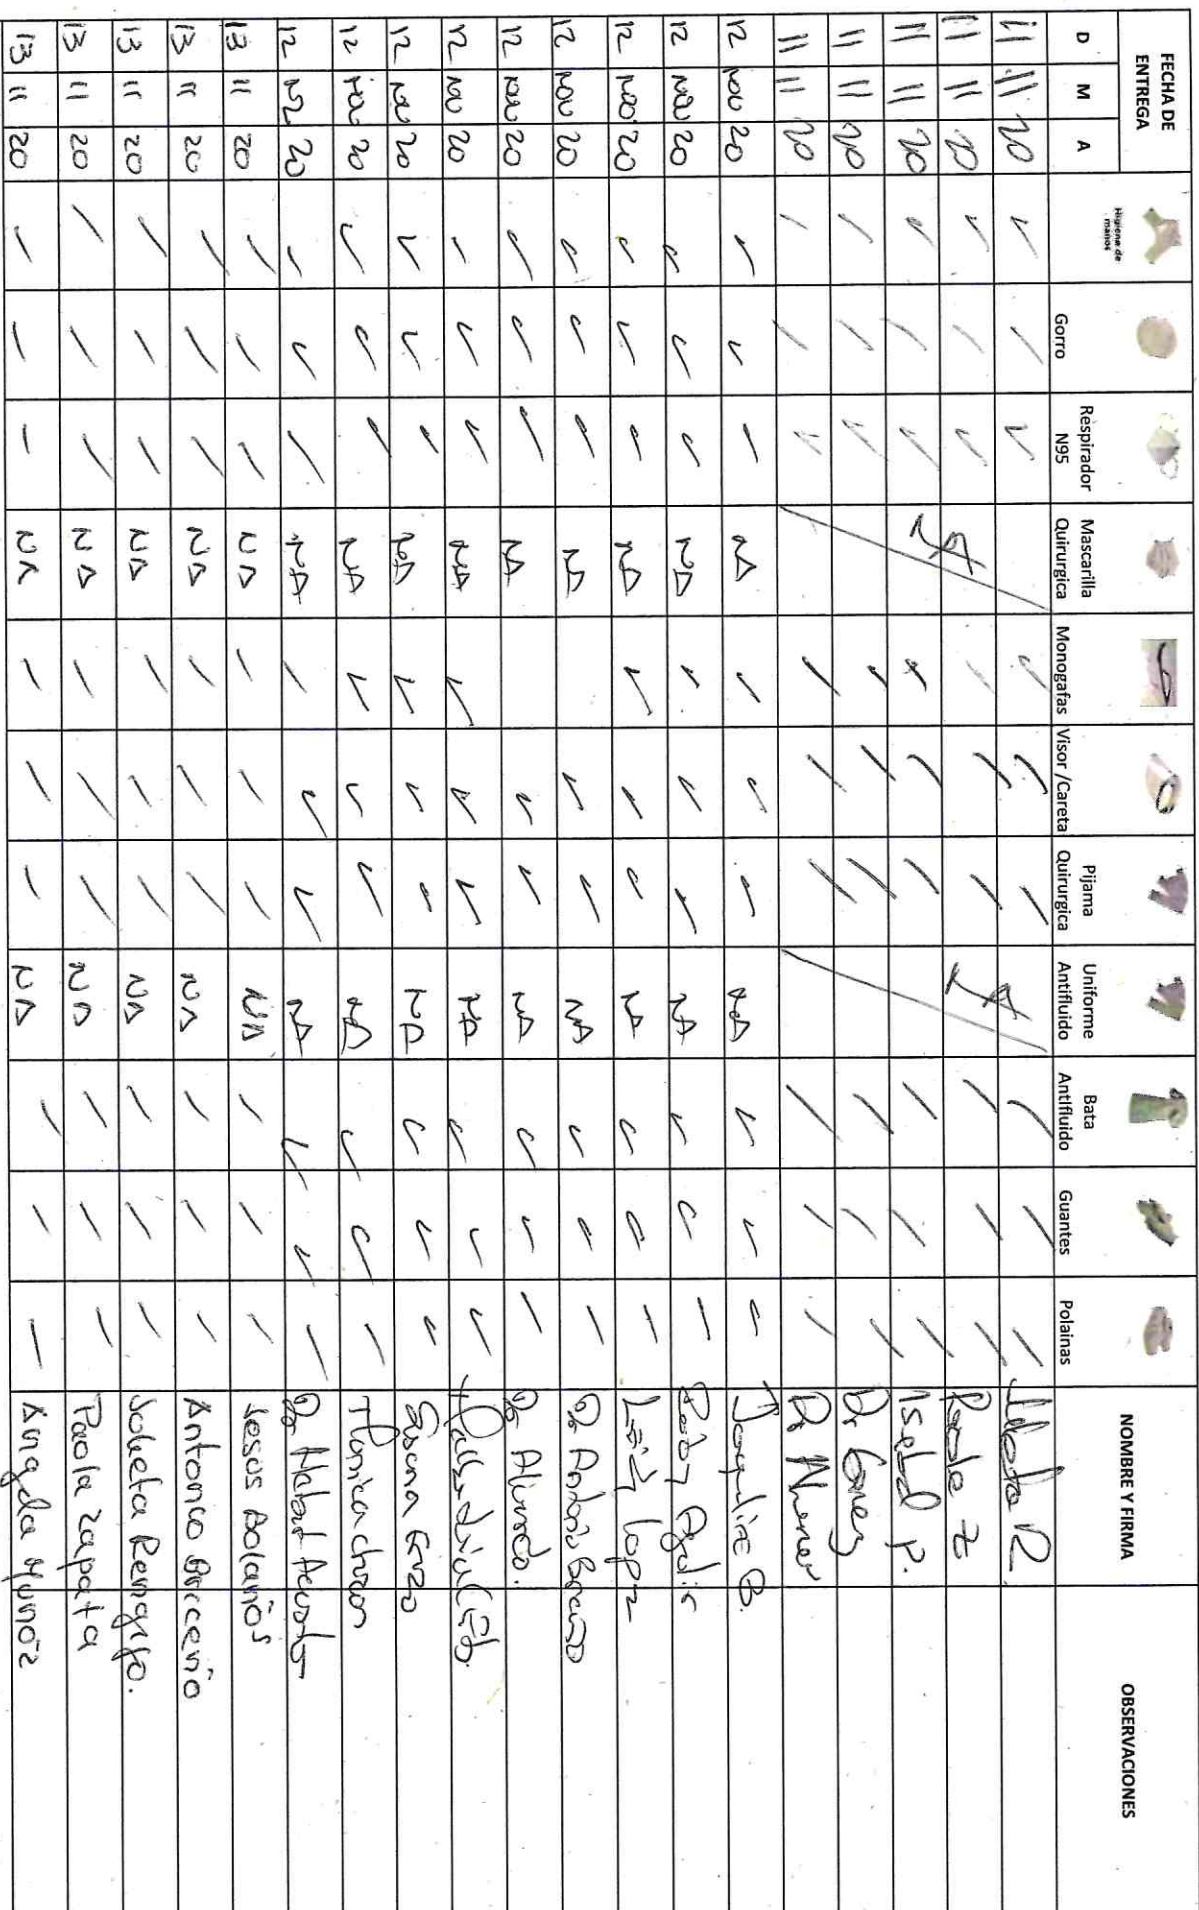 FECHA DE ENTREGA
D M A Higiene de manos Gorro Respirador N95 Mascarilla Quirurgica Monogafas Visor /Careta Pijama Quirurgica Uniforme Antifluido Bata Antifluido Guantes Polainas NOMBRE Y FIRMA OBSERVACIONES
11 11 20 NA NA
11 11 20 Paola Z
11 11 20 Isabel P.
11 11 20 Dr Gomez
11 11 20 Dr
12 Nov 20 NA NA B.
12 Nov 20 NA NA
12 Nov 20 NA NA Leidy Lopez
12 Nov 20 NA NA Dr Antonio
12 Nov 20 NA NA Dr
12 Nov 20 NA NA
12 Nov 20 NA NA Susana
12 Nov 20 NA NA Monica
12 20 NA NA Dr
13 11 20 NA NA Jesus Bolaños
13 11 20 NA NA Antonio Briceño
13 11 20 NA NA Julieta Rengifo.
13 11 20 NA NA Paola Zapata
13 11 20 NA NA Angela Muñoz